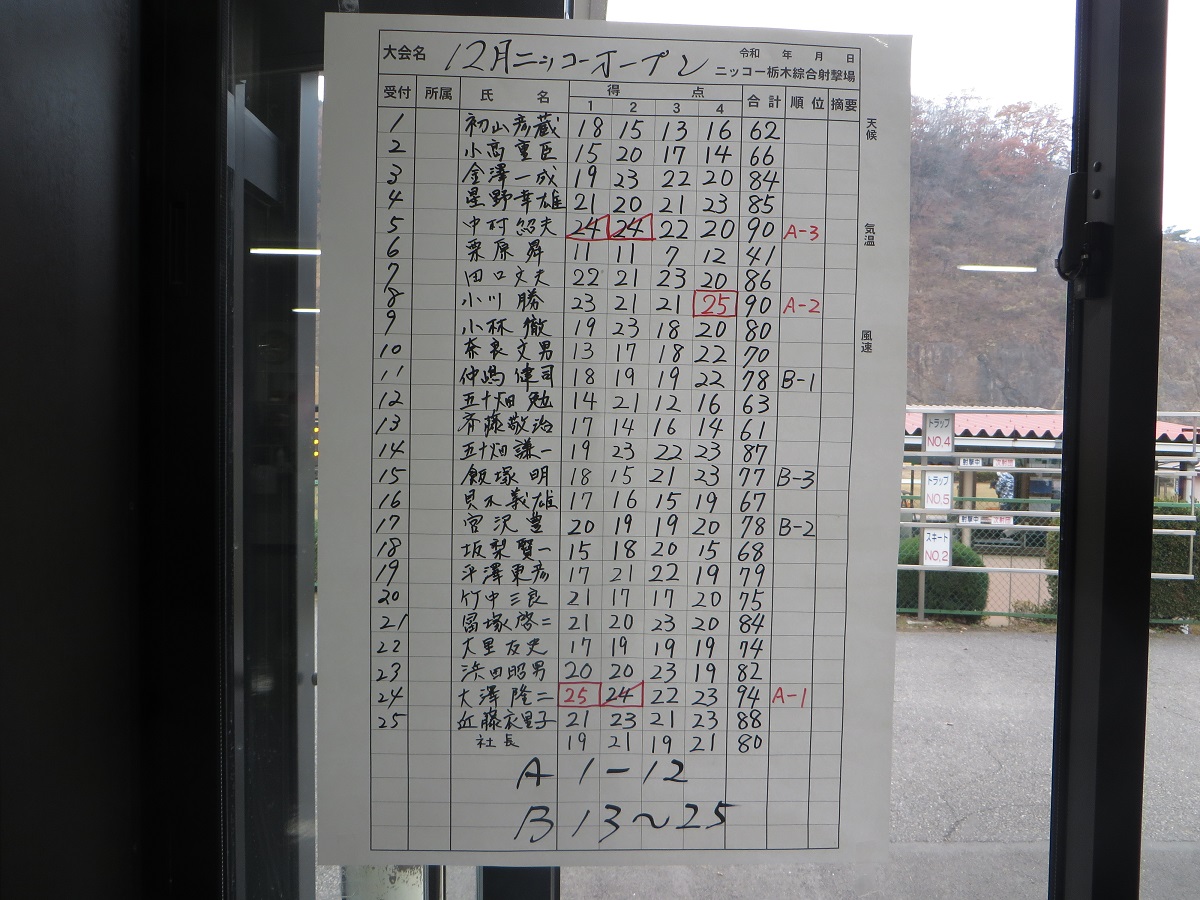 大会名 12月ニッコーオープン 令和 年 月 日
ニッコー栃木綜合射撃場
受付 所属 氏 名 得 点 合計 順位 摘要
1 2 3 4
1 初山彦蔵 18 15 13 16 62
2 小高重臣 15 20 17 14 66
3 金澤一成 19 23 22 20 84
4 星野幸雄 21 20 21 23 85
5 中村紹夫 24 24 22 20 90 A-3
6 栗原昇 11 11 7 12 41
7 田口文夫 22 21 23 20 86
8 小川勝 23 21 21 25 90 A-2
9 小林徹 19 23 18 20 80
10 奈良文男 13 17 18 22 70
11 仲嶋健司 18 19 19 22 78 B-1
12 五十畑勉 14 21 12 16 63
13 斉藤敬治 17 14 16 14 61
14 五十畑謙一 19 23 22 23 87
15 飯塚明 18 15 21 23 77 B-3
16 貝木義雄 17 16 15 19 67
17 宮沢豊 20 19 19 20 78 B-2
18 坂梨賢一 15 18 20 15 68
19 平澤東彦 17 21 22 19 79
20 竹中三良 21 17 17 20 75
21 冨塚啓二 21 20 23 20 84
22 大里友史 17 19 19 19 74
23 浜田昭男 20 20 23 19 82
24 大澤隆二 25 24 22 23 94 A-1
25 近藤衣里子 21 23 21 23 88
社長 19 21 19 21 80
A 1-12
B 13~25
天候
気温
風速
トラップ
NO.4
射撃中
トラップ
NO.5
射撃中
スキート
NO.2